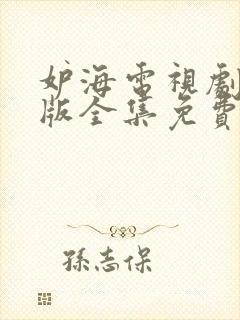 妒海電視劇
版全集免費
孫志保